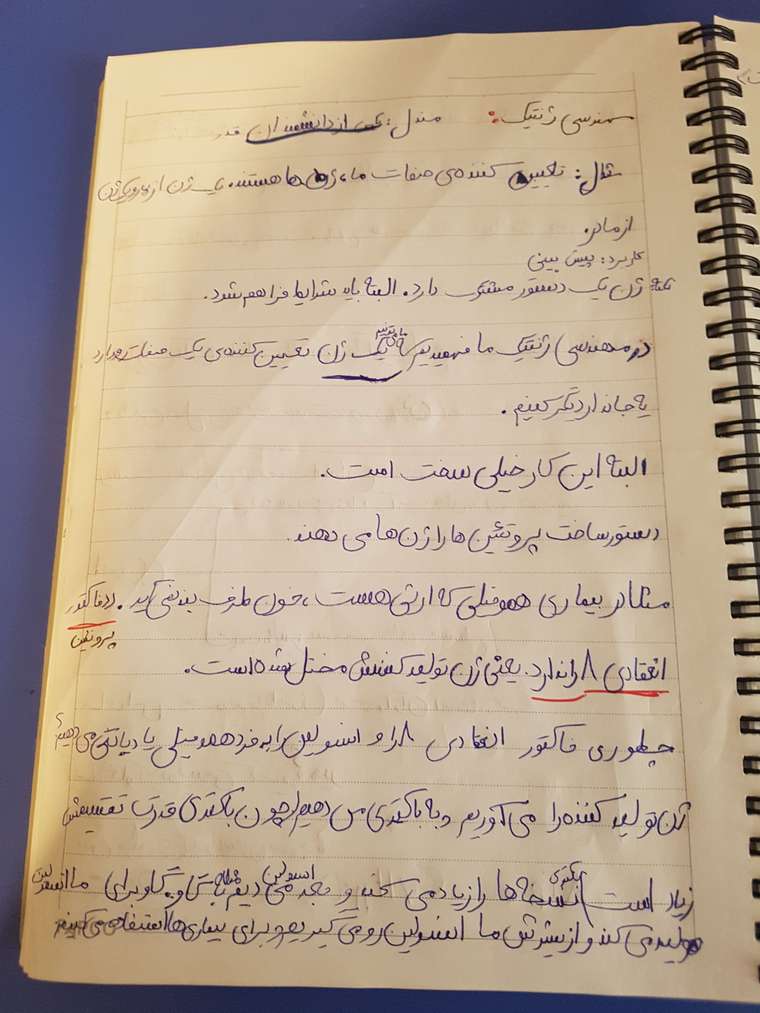 مهندسی ژنتیک: مندل: یکی از دانشمندان
مثال: تعیین کننده‌ی صفات ما، ژن ها هستند. یک ژن از پدر و یک ژن
از مادر.
کاربرد: پیش بینی
نکته ژن یک دستور مشترک دارد. البته باید شرایط فراهم شود.
در مهندسی ژنتیک ما فهمیدیم که ما می‌توانیم یک ژن تعیین کننده‌ی یک صفت را وارد
یه جاندار دیگر کنیم.
البته این کار خیلی سخت است.
دستور ساخت پروتئین ها را ژن ها می دهند.
مثلا در بیماری هموفیلی که ارثی هست، خون طرف بند نمی آید. فاکتور
پروتئین
انعقادی ۸ را ندارد. یعنی ژن تولید کننده‌ش مختل شده است.
چطوری فاکتور انعقادی ۸ را و انسولین را به فرد هموفیلی یا دیابتی می دهیم؟
ژن تولید کننده را می آوریم و به باکتری می دهیم چون باکتری قدرت تقسیمش
زیاد است باکتری نسخه ها را زیاد می کند و بعد انسولین می دیم به گاو و گاو برای ما انسولین
تولید می کند و از شیرش ما انسولین رو می گیریم و برای بیماری ها استفاده می کنیم